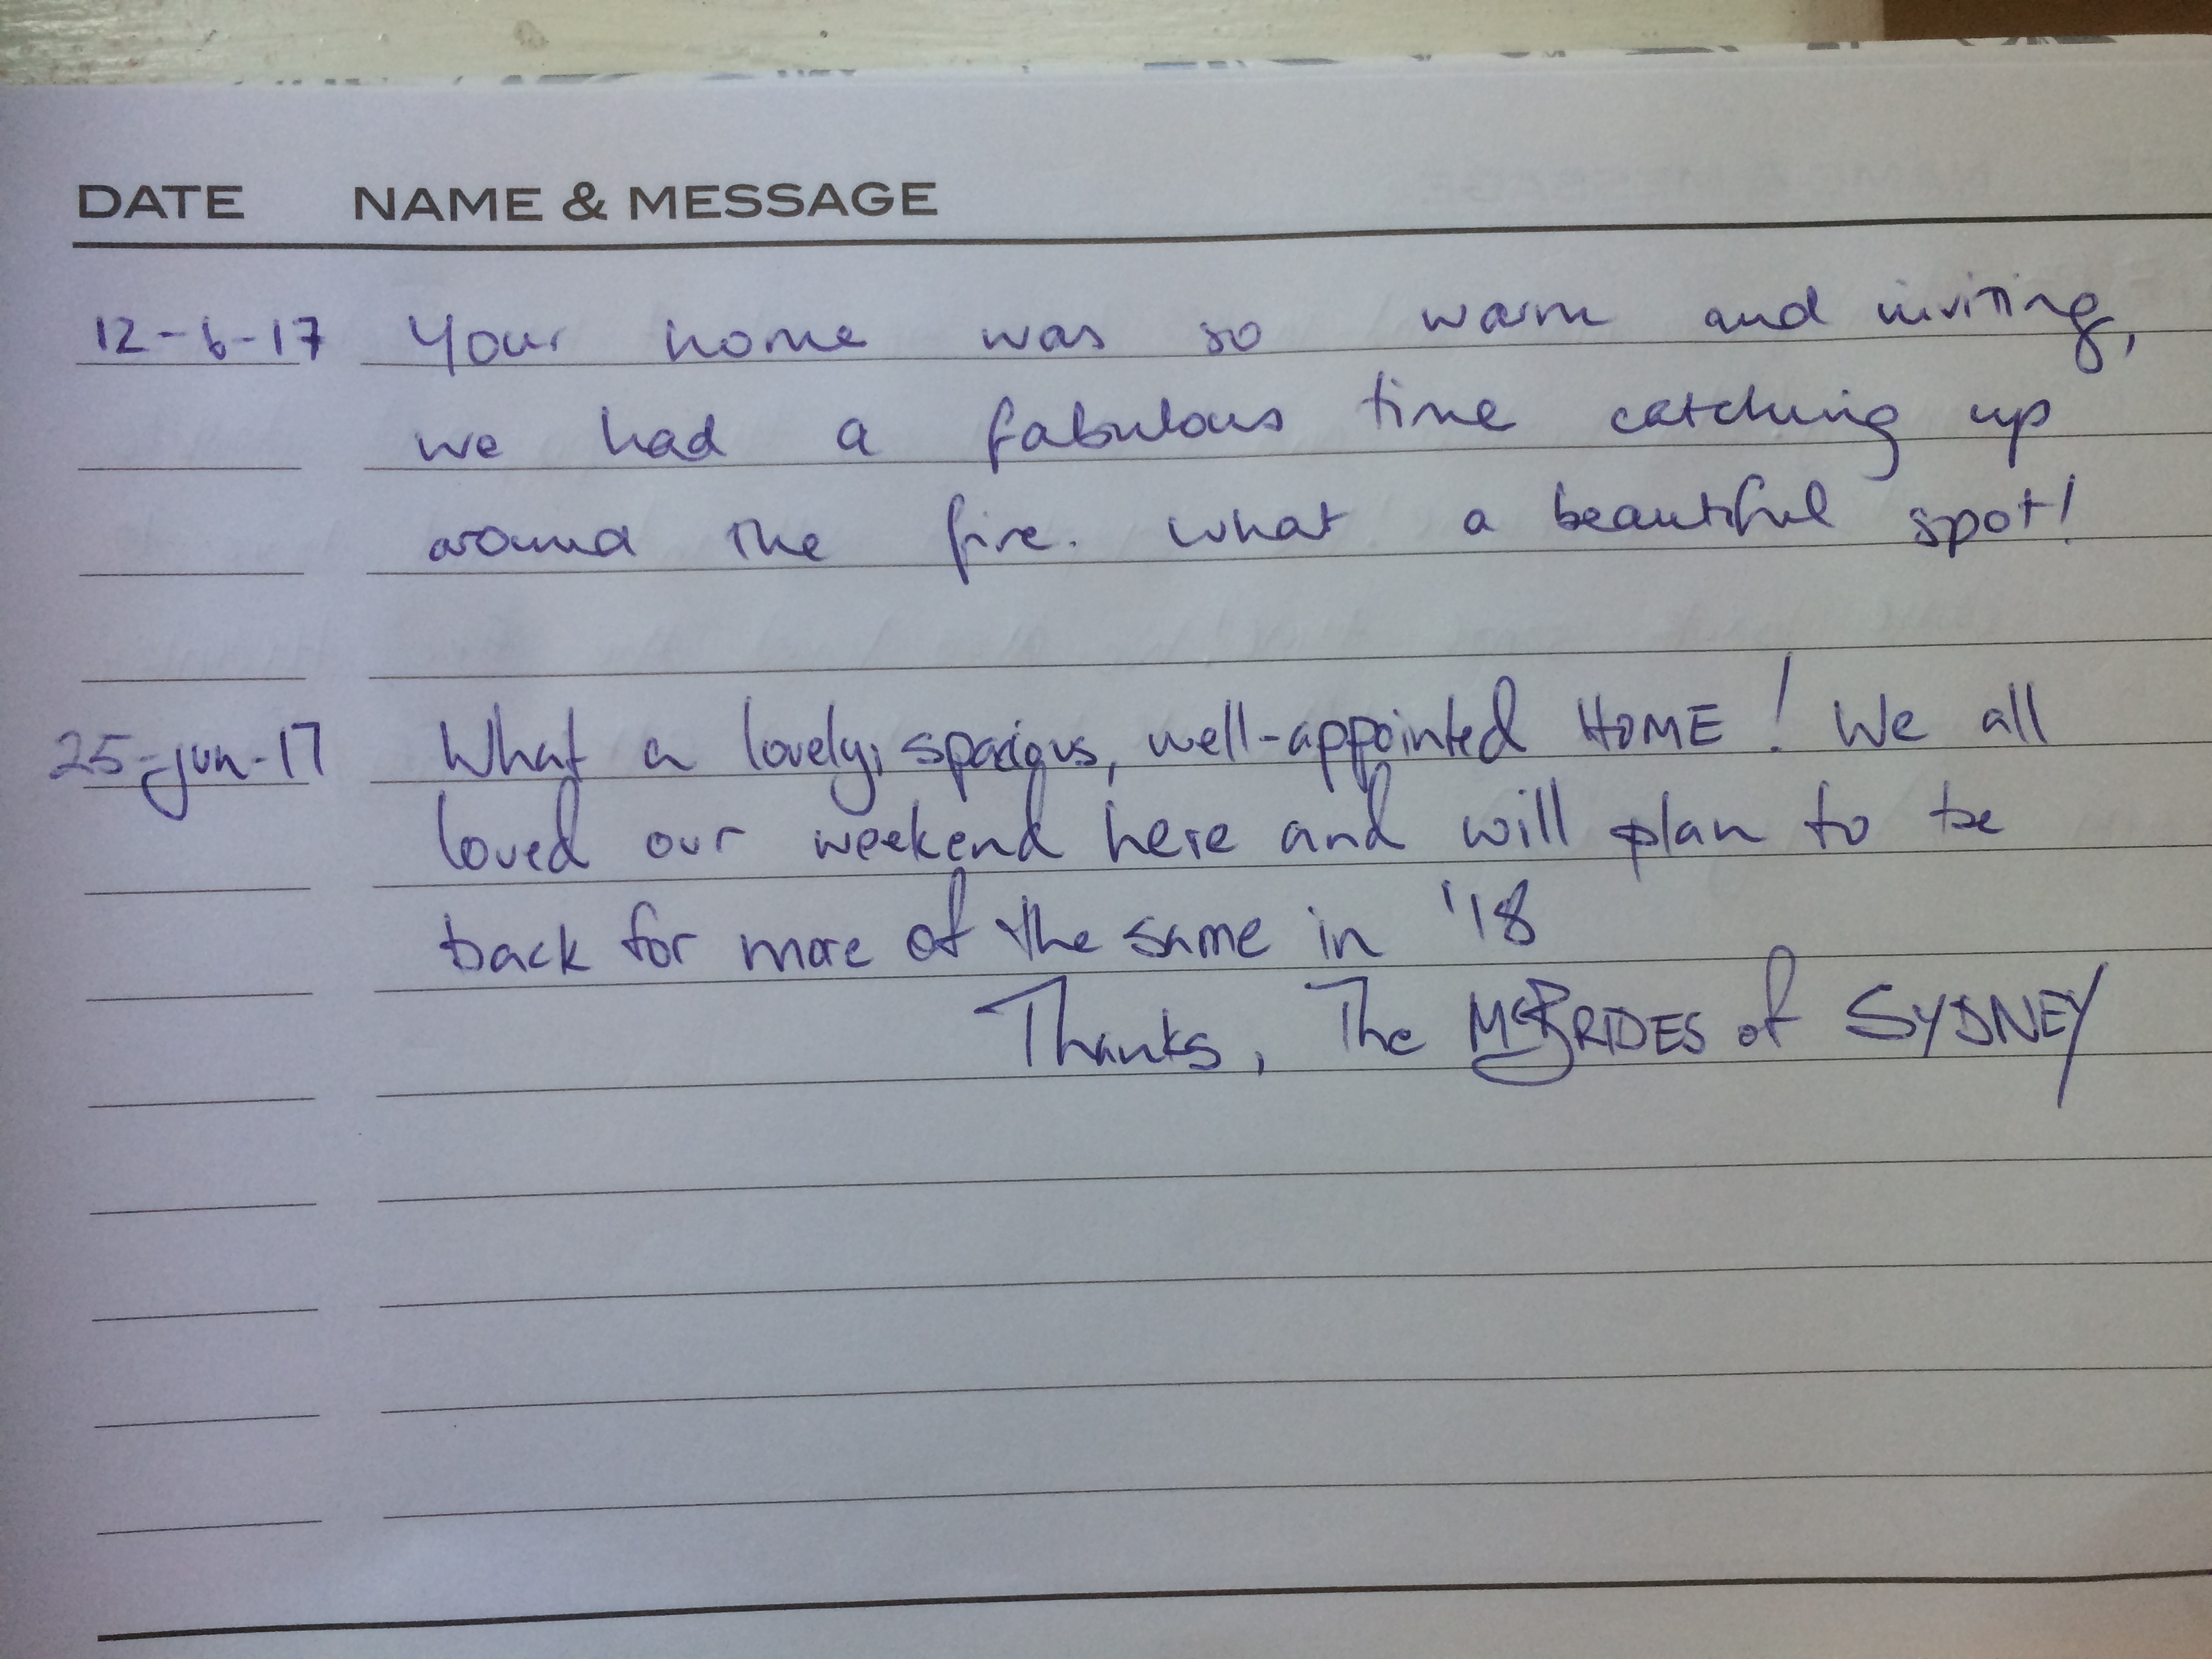 DATE NAME & MESSAGE
12-6-17 Your home was so warm and inviting,
we had a fabulous time catching up
around the fire. what a beautiful spot!
25-jun-17 What a lovely, spacious, well-appointed HOME! We all
loved our weekend here and will plan to be
back for more of the same in '18
Thanks, The McBRIDES of SYDNEY